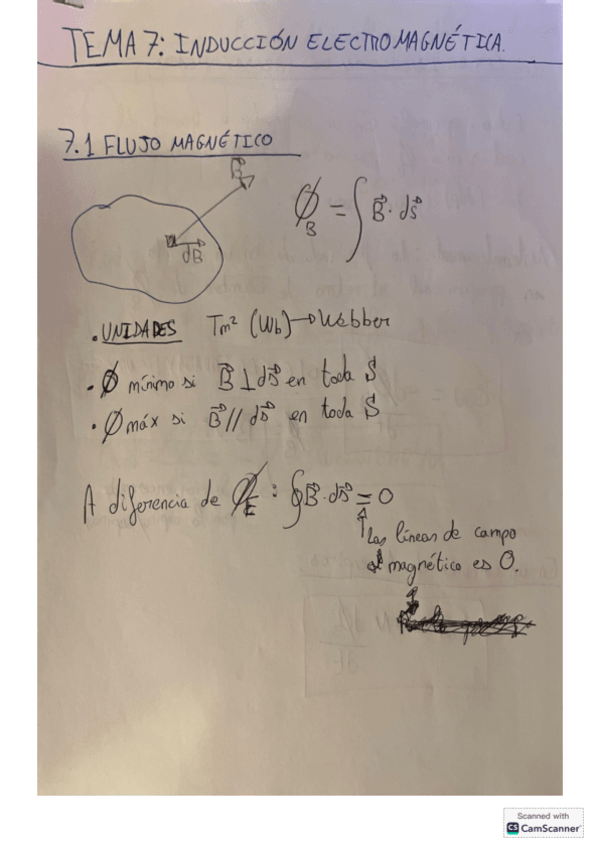 TEMA 7: INDUCCIÓN ELECTROMAGNÉTICA.
7.1 FLUJO MAGNÉTICO
B⃗
dB⃗
Ø_B = ∫ B⃗ · ds⃗
· UNIDADES Tm² (Wb) → Webber
· Ø mínimo si B⃗ ⊥ ds⃗ en toda S
· Ø máx si B⃗ // ds⃗ en toda S
A diferencia de Ø_E : ∮ B⃗ · ds⃗ = 0
Las líneas de campo
magnético es 0.
Scanned with
CS CamScanner